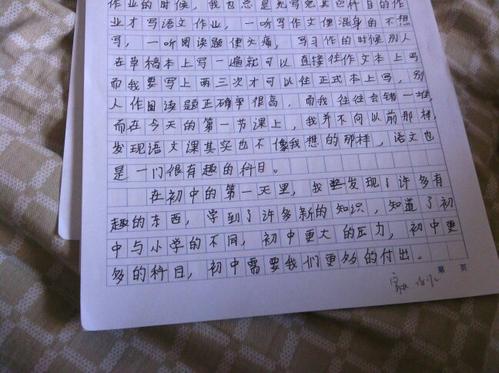 作业的时候，我也总是先写完其它科目的作
业才写语文作业，一听写作文便浑身的不想
写，一听阅读题便头痛，写习作的时候别人
在草稿本上写一遍就可以直接往作文本上写
而我要写上两三次才可以往正式本上写，别
人作阅读题正确率很高，而我往往会错一堆，
而在今天的第一节课上，我并不向以前那样，
发现语文课其实也不像我想的那样，语文也
是一门很有趣的科目。
在初中的第一天里，我发现了许多有
趣的东西，学到了许多新的知识，知道了初
中与小学的不同，初中更大的压力，初中更
多的科目，初中需要我们更多的付出。
第 页